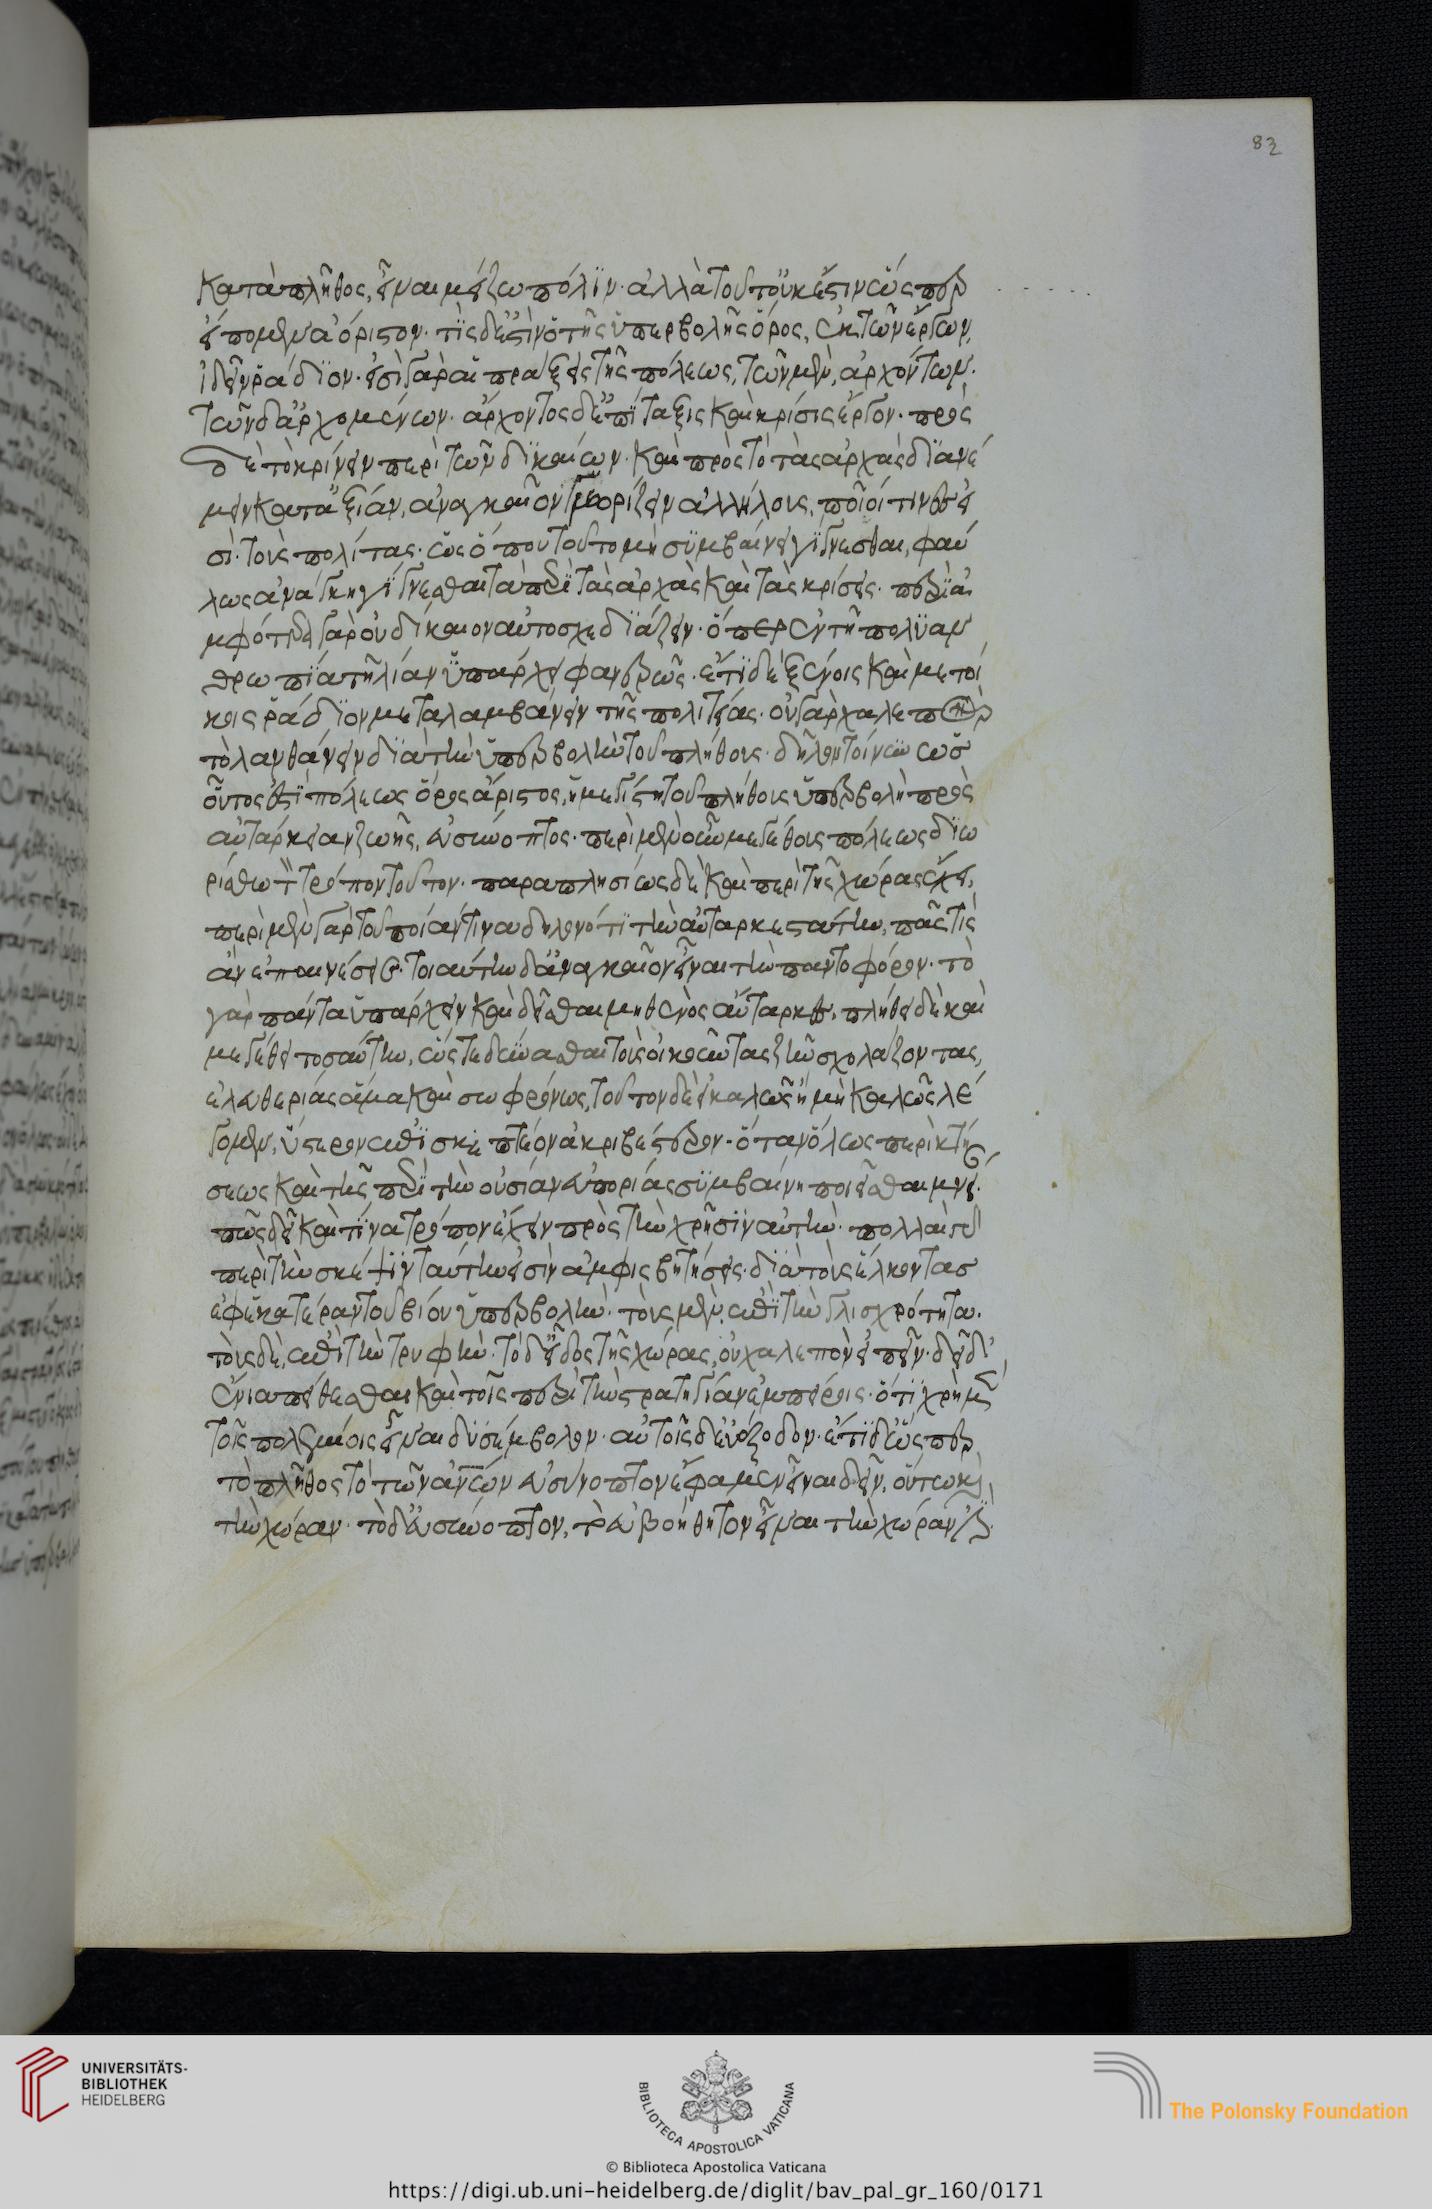 83
κατὰ πλῆθος, εἶναι μείζω πόλιν· ἀλλὰ τοῦτ' οὐκ ἔστιν ὥσπερ
εἴπομεν ἀόριστον· τίς δ' ἐστὶν ὁ τῆς ὑπερβολῆς ὅρος, ἐκ τῶν ἔργων,
ἰδεῖν ῥάδιον· εἰσὶ γὰρ αἱ πράξεις τῆς πόλεως, τῶν μὲν, ἀρχόντων·
τῶν δ' ἀρχομένων· ἄρχοντος δ' ἐπίταξις καὶ κρίσις ἔργον· πρὸς
δὲ τὸ κρίνειν περὶ τῶν δικαίων· καὶ πρὸς τὸ τὰς ἀρχὰς διανέ
μειν κατ' ἀξίαν, ἀναγκαῖον γνωρίζειν ἀλλήλους, ποῖοί τινές εἰ
σι· τοὺς πολίτας· ὡς ὅπου τοῦτο μὴ συμβαίνει γίγνεσθαι, φαύ
λως ἀνάγκη γίγνεσθαι τὰ περὶ τὰς ἀρχὰς καὶ τὰς κρίσεις· περὶ ἀ
μφότερα γὰρ οὐ δίκαιον αὐτοσχεδιάζειν· ὅπερ ἐν τῇ πολυαν
θρωπίᾳ τῇ λίαν ὑπάρχει φανερῶς· ἔτι δὲ ξένοις καὶ μετοί
κοις ῥάδιον μεταλαμβάνειν τῆς πολιτείας· οὐ γὰρ χαλεπὸν
τὸ λανθάνειν διὰ τὴν ὑπερβολὴν τοῦ πλήθους· δῆλον τοίνυν ὡς
οὗτός ἐστι πόλεως ὅρος ἄριστος, ἡ μεγίστη τοῦ πλήθους ὑπερβολὴ πρὸς
αὐτάρκειαν ζωῆς, εὐσύνοπτος· περὶ μὲν οὖν μεγέθους πόλεως διω
ρίσθω τὸν τρόπον τοῦτον· παραπλησίως δὲ καὶ περὶ τῆς χώρας ἔχει,
περὶ μὲν γὰρ τοῦ ποίαν τινα δῆλον ὅτι τὴν αὐταρκεστάτην, πᾶς τις
ἂν ἐπαινέσειε· τοιαύτην δ' ἀναγκαῖον εἶναι τὴν παντοφόρον· τὸ
γὰρ πάντα ὑπάρχειν καὶ δεῖσθαι μηθενὸς αὔταρκες, πλήθει δὲ καὶ
μεγέθει τοσαύτην, ὥστε δύνασθαι τοὺς οἰκοῦντας ζῆν σχολάζοντας,
ἐλευθερίως ἅμα καὶ σωφρόνως, τοῦτον δ' εἰ καλῶς ἢ μὴ καλῶς λέ
γομεν, ὕστερον ἐπισκεπτέον ἀκριβέστερον· ὅταν ὅλως περὶ κτή
σεως καὶ τῆς περὶ τὴν οὐσίαν εὐπορίας συμβαίνῃ ποιεῖσθαι μνεί·
πῶς δεῖ καὶ τίνα τρόπον ἔχειν πρὸς τὴν χρῆσιν αὐτήν· πολλαὶ γὰρ
περὶ τὴν σκέψιν ταύτην εἰσὶν ἀμφισβητήσεις· διὰ τοὺς ἕλκοντας
ἐφ' ἑκατέραν τοῦ βίου ὑπερβολήν· τοὺς μὲν, ἐπὶ τὴν γλισχρότητα·
τοὺς δὲ, ἐπὶ τὴν τρυφήν· τὸ δ' εἶδος τῆς χώρας, οὐ χαλεπὸν εἰπεῖν· δεῖ δ'
ἔνια πείθεσθαι καὶ τοῖς περὶ τὴν στρατηγίαν ἐμπείροις· ὅτι χρὴ μὲν
τοῖς πολεμίοις εἶναι δυσέμβολον· αὐτοῖς δ' εὐέξοδον· ἔτι δ' ὥσπερ
τὸ πλῆθος τὸ τῶν ἀνῶν εὐσύνοπτον ἔφαμεν εἶναι δεῖν, οὕτω καὶ
τὴν χώραν· τὸ δ' εὐσύνοπτον, τὸ εὐβοήθητον εἶναι τὴν χώραν ἐστι·
UNIVERSITÄTS-
BIBLIOTHEK
HEIDELBERG
BIBLIOTECA APOSTOLICA VATICANA
The Polonsky Foundation
© Biblioteca Apostolica Vaticana
https://digi.ub.uni-heidelberg.de/diglit/bav_pal_gr_160/0171